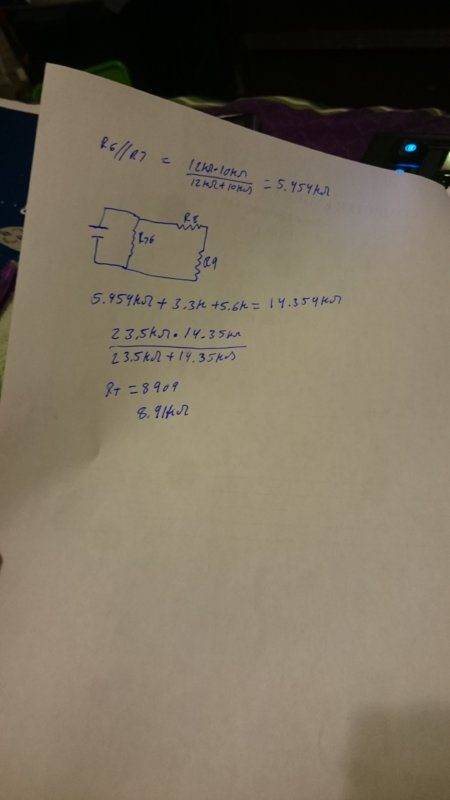 R6//R7 = 12kΩ·10kΩ / 12kΩ+10kΩ = 5.454kΩ
R8
R76
R9
5.454kΩ + 3.3k + 5.6k = 14.354kΩ
23.5kΩ · 14.35kΩ
23.5kΩ + 14.35kΩ
RT = 8909
8.91kΩ